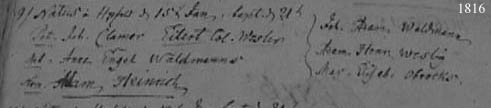 1816
9) Natus à Hopsten d 15t Jan. bapt. d 21t
Pat. Joh. Clamer Eilert Col. Wesler
Mt. Anna Engel Waldmanns
Nom. Adam Heinrich
Joh. Herm Waldmann
Adam Henr Wesling
Mar. Elisab.